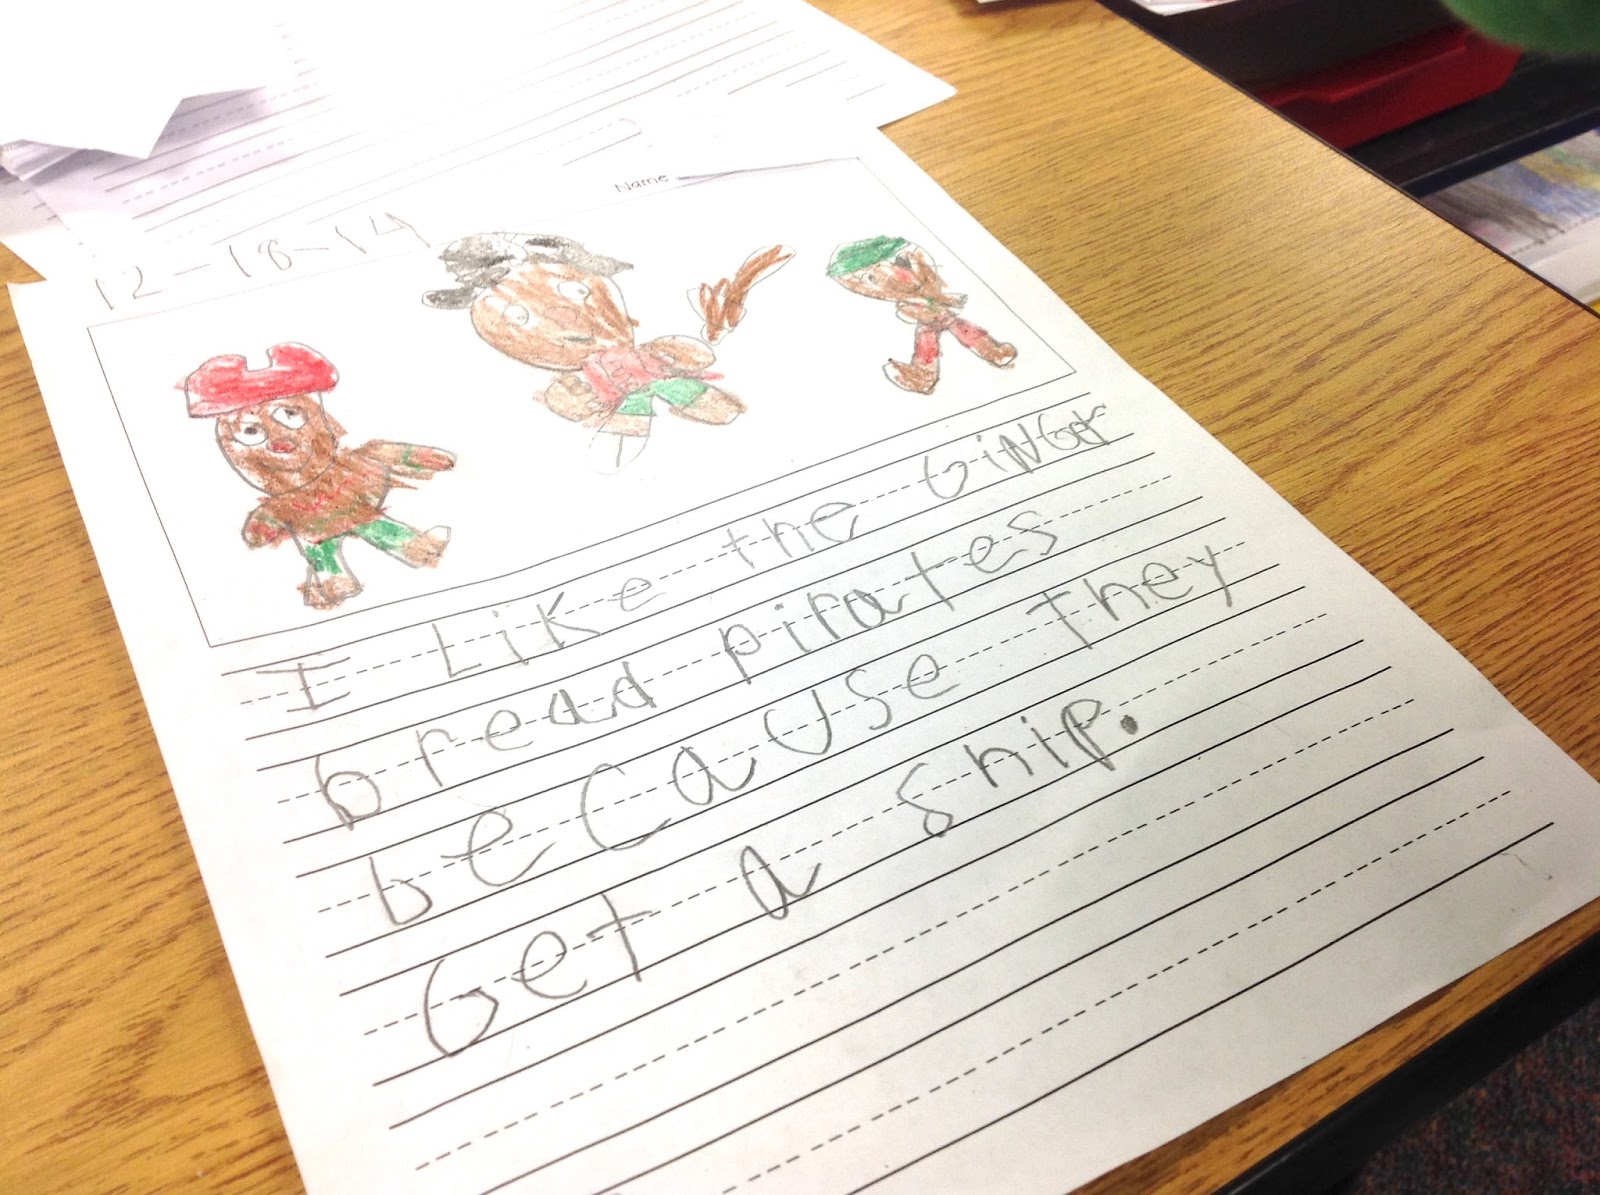 Name
12-18-14
I Like the GiNGer
bread pirates
because they
Get a ship.